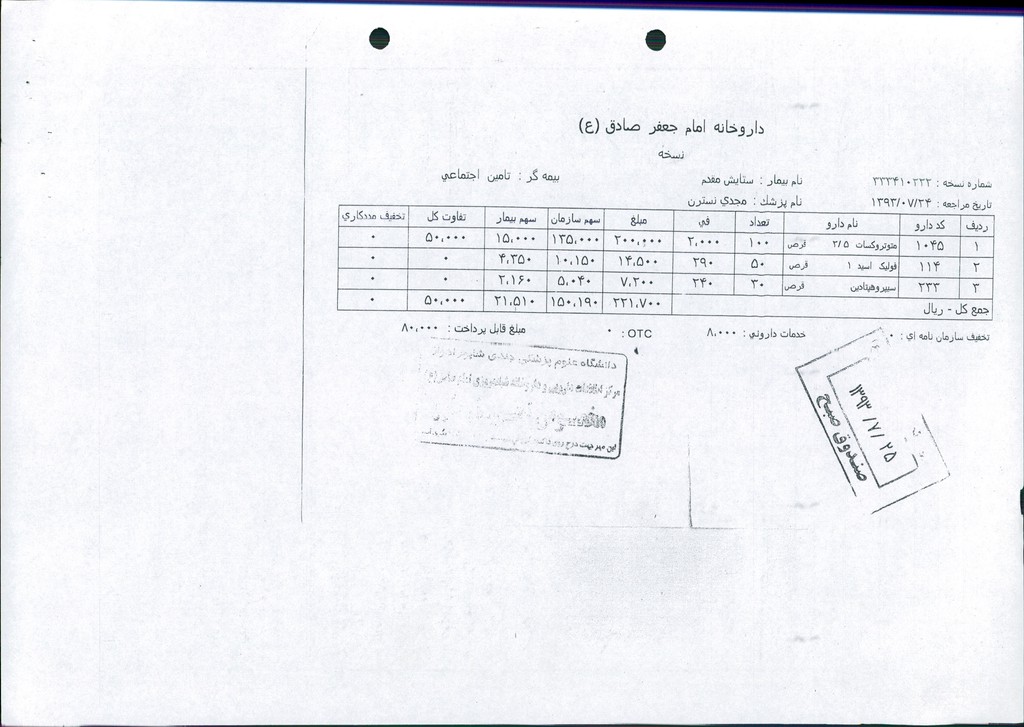 داروخانه امام جعفر صادق (ع)
نسخه
شماره نسخه : ۳۳۳۴۱۰۲۳۲ نام بیمار : ستایش مقدم بیمه گر : تامین اجتماعي
تاریخ مراجعه : ۱۳۹۳/۰۷/۲۴ نام پزشك : مجدي نسترن
ردیف کد دارو نام دارو تعداد في مبلغ سهم سازمان سهم بیمار تفاوت کل تخفیف مددکاري
۱ ۱۰۴۵ متوتروکسات ۲/۵ قرص ۱۰۰ ۲,۰۰۰ ۲۰۰,۰۰۰ ۱۳۵,۰۰۰ ۱۵,۰۰۰ ۵۰,۰۰۰ ۰
۲ ۱۱۴ فولیک اسید ۱ قرص ۵۰ ۲۹۰ ۱۴,۵۰۰ ۱۰,۱۵۰ ۴,۳۵۰ ۰ ۰
۳ ۲۳۳ سیپروهپتادین قرص ۳۰ ۲۴۰ ۷,۲۰۰ ۵,۰۴۰ ۲,۱۶۰ ۰ ۰
جمع کل - ریال ۲۲۱,۷۰۰ ۱۵۰,۱۹۰ ۲۱,۵۱۰ ۵۰,۰۰۰ ۰
تخفیف سازمان نامه اي : ۰ خدمات داروئي : ۸,۰۰۰ OTC : ۰ مبلغ قابل پرداخت : ۸۰,۰۰۰
دانشگاه علوم پزشکی جندی شاپور
مرکز اطلاعات دارویی و داروخانه شبانه‌روزی امام
این مهر جهت درج روی
۱۳۹۳/۷/۲۵
صندوق صبح